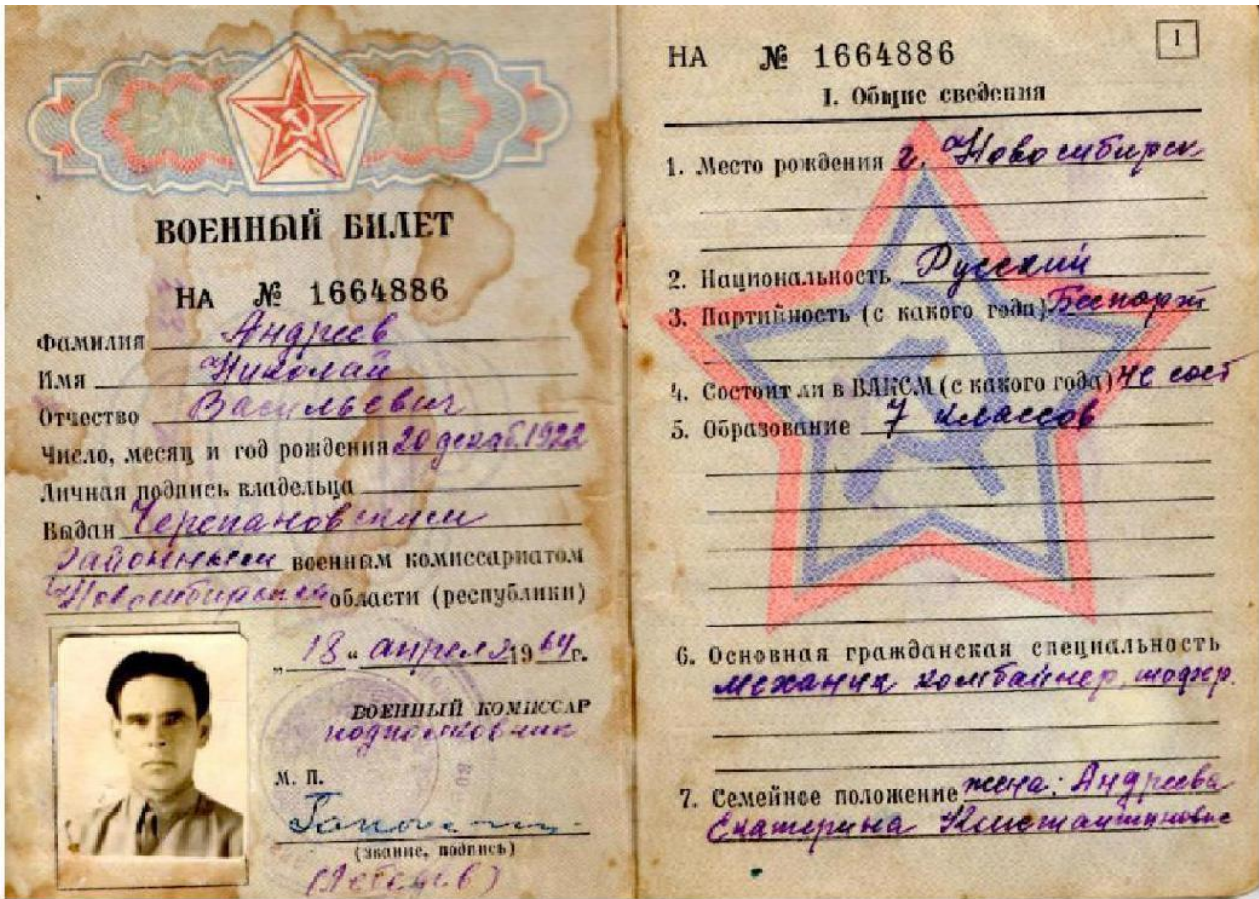 ВОЕННЫЙ БИЛЕТ
НА № 1664886
Фамилия Андреев
Имя Николай
Отчество Васильевич
Число, месяц и год рождения 20 декаб. 1922
Личная подпись владельца
Выдан Черепановским
Районным военным комиссариатом
Новосибирской области (республики)
„ 18 “ апреля 1964 г.
ВОЕННЫЙ КОМИССАР
подполковник
М. П.
(звание, подпись)
НА № 1664886
1
I. Общие сведения
1. Место рождения г. Новосибирск
2. Национальность Русский
3. Партийность (с какого года) Беспарт
4. Состоит ли в ВЛКСМ (с какого года) не сост
5. Образование 7 классов
6. Основная гражданская специальность
механик комбайнер, шофер.
7. Семейное положение жена: Андреева
Екатерина Константиновна